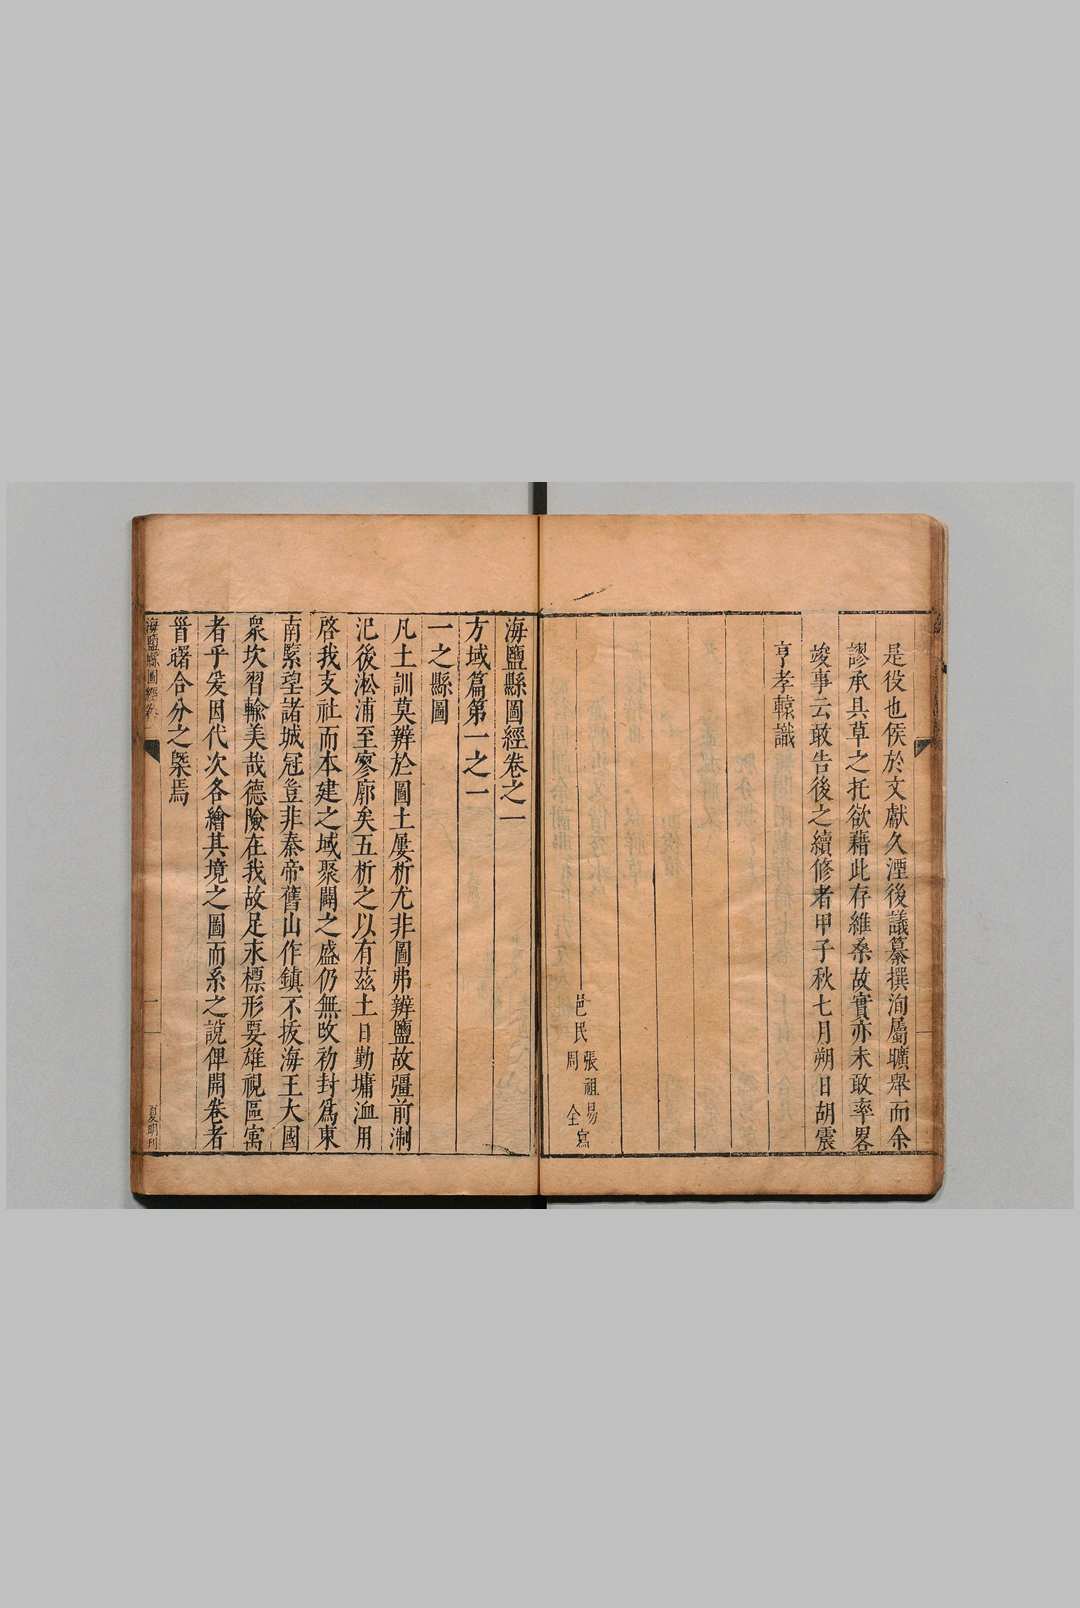 是役也侯於文獻久湮後議纂撰洵屬曠舉而余
謬承具草之托欲藉此存維桑故實亦未敢率畧
竣事云敢告後之續修者甲子秋七月朔日胡震
亨孝轅識
邑民張祖易
周全寫
海鹽縣圖經卷之一
方域篇第一之一
一之縣圖
凡土訓莫辨於圖土屢析尤非圖弗辨鹽故彊前淛
汜後淞浦至寥廓矣五析之以有茲土日勤墉洫用
啓我支社而本建之域聚闢之盛仍無改初封爲東
南緊望諸城冠豈非秦帝舊山作鎮不拔海王大國
衆坎習輸美哉德險在我故足求標形要雄視區寓
者乎爰因代次各繪其境之圖而系之說俾開卷者
晉曙合分之槩焉
海鹽縣圖經卷一
一
夏明刊